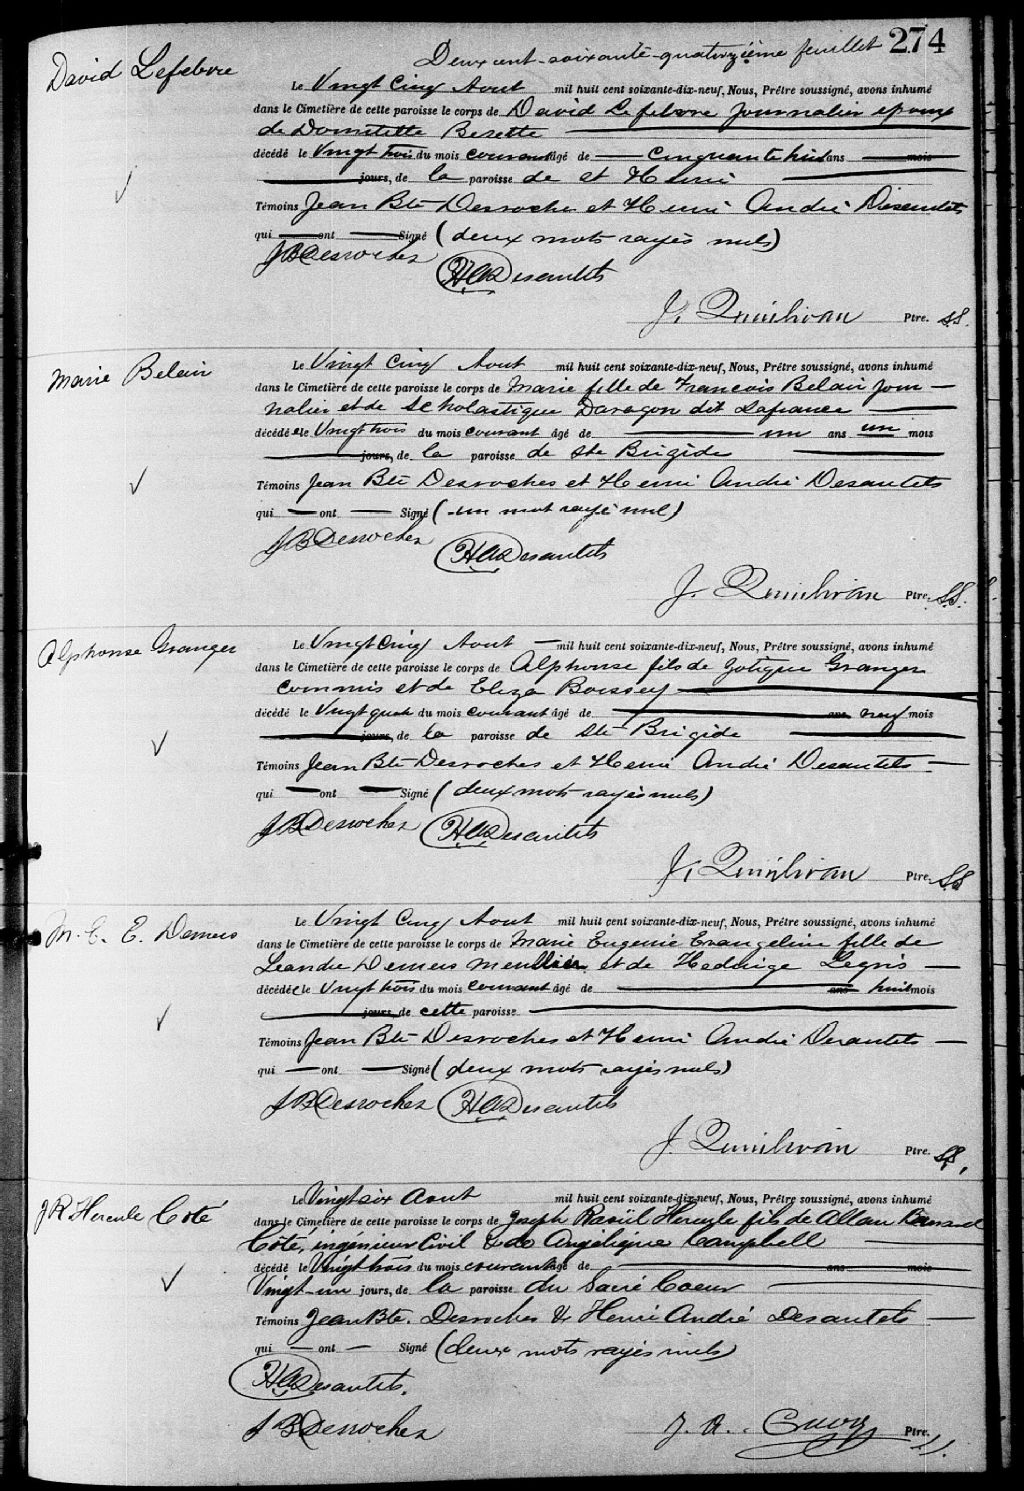 Deux cent-soixante-quatorzième feuillet 274
David Lefebvre
Le Vingt Cinq Aout mil huit cent soixante-dix-neuf, Nous, Prêtre soussigné, avons inhumé
dans le Cimetière de cette paroisse le corps de David Lefebvre Journalier epoux
de Domitette Bezette
décédé le Vingt trois du mois courant âgé de cinquante huit ans mois
jours, de la paroisse de st Henri
Témoins Jean Bte Desroches et Henri André Désautels
qui ont Signé (deux mots rayés nuls)
JBDesroches
HADesautels
J. Quinlivan Ptre. SS.
Marie Belair
Le Vingt Cinq Aout mil huit cent soixante-dix-neuf, Nous, Prêtre soussigné, avons inhumé
dans le Cimetière de cette paroisse le corps de Marie fille de Francois Belair jour
nalier et de Scholastique Daragon dit Lafrance
décédée le Vingt trois du mois courant âgé de un ans un mois
jours, de la paroisse de Ste Brigide
Témoins Jean Bte Desroches et Henri André Desautels
qui ont Signé (un mot rayé nul)
JBDesroches
HADesautels
J. Quinlivan Ptre. SS.
Alphonse Granger
Le Vingt Cinq Aout mil huit cent soixante-dix-neuf, Nous, Prêtre soussigné, avons inhumé
dans le Cimetière de cette paroisse le corps de Alphonse fils de Zotique Granger
commis et de Eliza Boissey
décédé le Vingt quatre du mois courant âgé de ans neuf mois
jours, de la paroisse de Ste Brigide
Témoins Jean Bte Desroches et Henri André Desautels
qui ont Signé (deux mots rayés nuls)
JBDesroches HADesautels
J. Quinlivan Ptre. SS
M. E. E. Demers
Le Vingt Cinq Aout mil huit cent soixante-dix-neuf, Nous, Prêtre soussigné, avons inhumé
dans le Cimetière de cette paroisse le corps de Marie Eugenie Evangeline fille de
Leandre Demers menuisier et de Hedwige Legris
décédée le Vingt trois du mois courant âgé de ans huit mois
jours, de cette paroisse
Témoins Jean Bte Desroches et Henri André Desautels
qui ont Signé (deux mots rayés nuls)
JBDesroches HADesautels
J. Quinlivan Ptre. SS.
J R Hercule Coté
Le Vingt six Aout mil huit cent soixante-dix-neuf, Nous, Prêtre soussigné, avons inhumé
dans le Cimetière de cette paroisse le corps de Joseph Raoül Hercule fils de Allan
Coté, ingénieur Civil & de Angélique Campbell
décédé le Vingt trois du mois courant âgé de ans mois
Vingt-un jours, de la paroisse du Sacré Coeur
Témoins Jean Bte. Desroches & Henri André Desautels
qui ont Signé (deux mots rayés nuls)
HADesautels.
JBDesroches
J. A. Ptre.